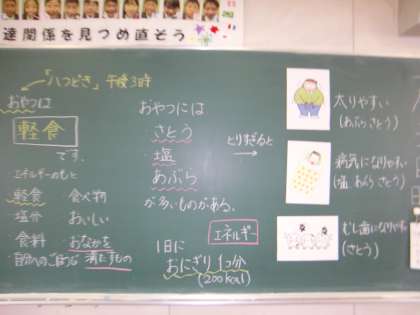 達関係を見つめ直そう
「八つどき」午後3時
おやつは
軽食
です。
エネルギーのもと
軽食 食べ物
塩分 おいしい
食料 おなかを
満たすもの
おやつには
さとう
塩
あぶら
が多いものがある。
とりすぎると
→
エネルギー
1日に
おにぎり1コ分
(200kcal)
太りやすい
(あぶら さとう)
病気になりやすい
(塩 あぶら さとう)
むし歯になりやすい
(さとう)